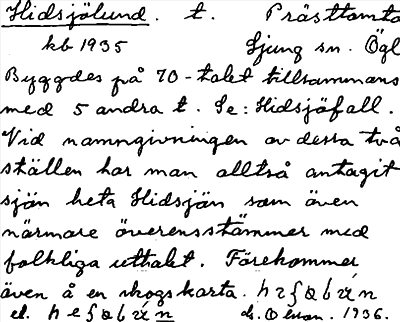 Hidsjölund. t. Prästtomta
kb 1935 Ljung sn. Ögl
Byggdes på 70-talet tillsammans
med 5 andra t. Se: Hidsjöfall.
Vid namngivningen av dessa två
ställen har man alltså antagit
sjön heta Hidsjön som även
närmare överensstämmer med
folkliga uttalet. Förekommer
även å en skogskarta.
el. 1936.